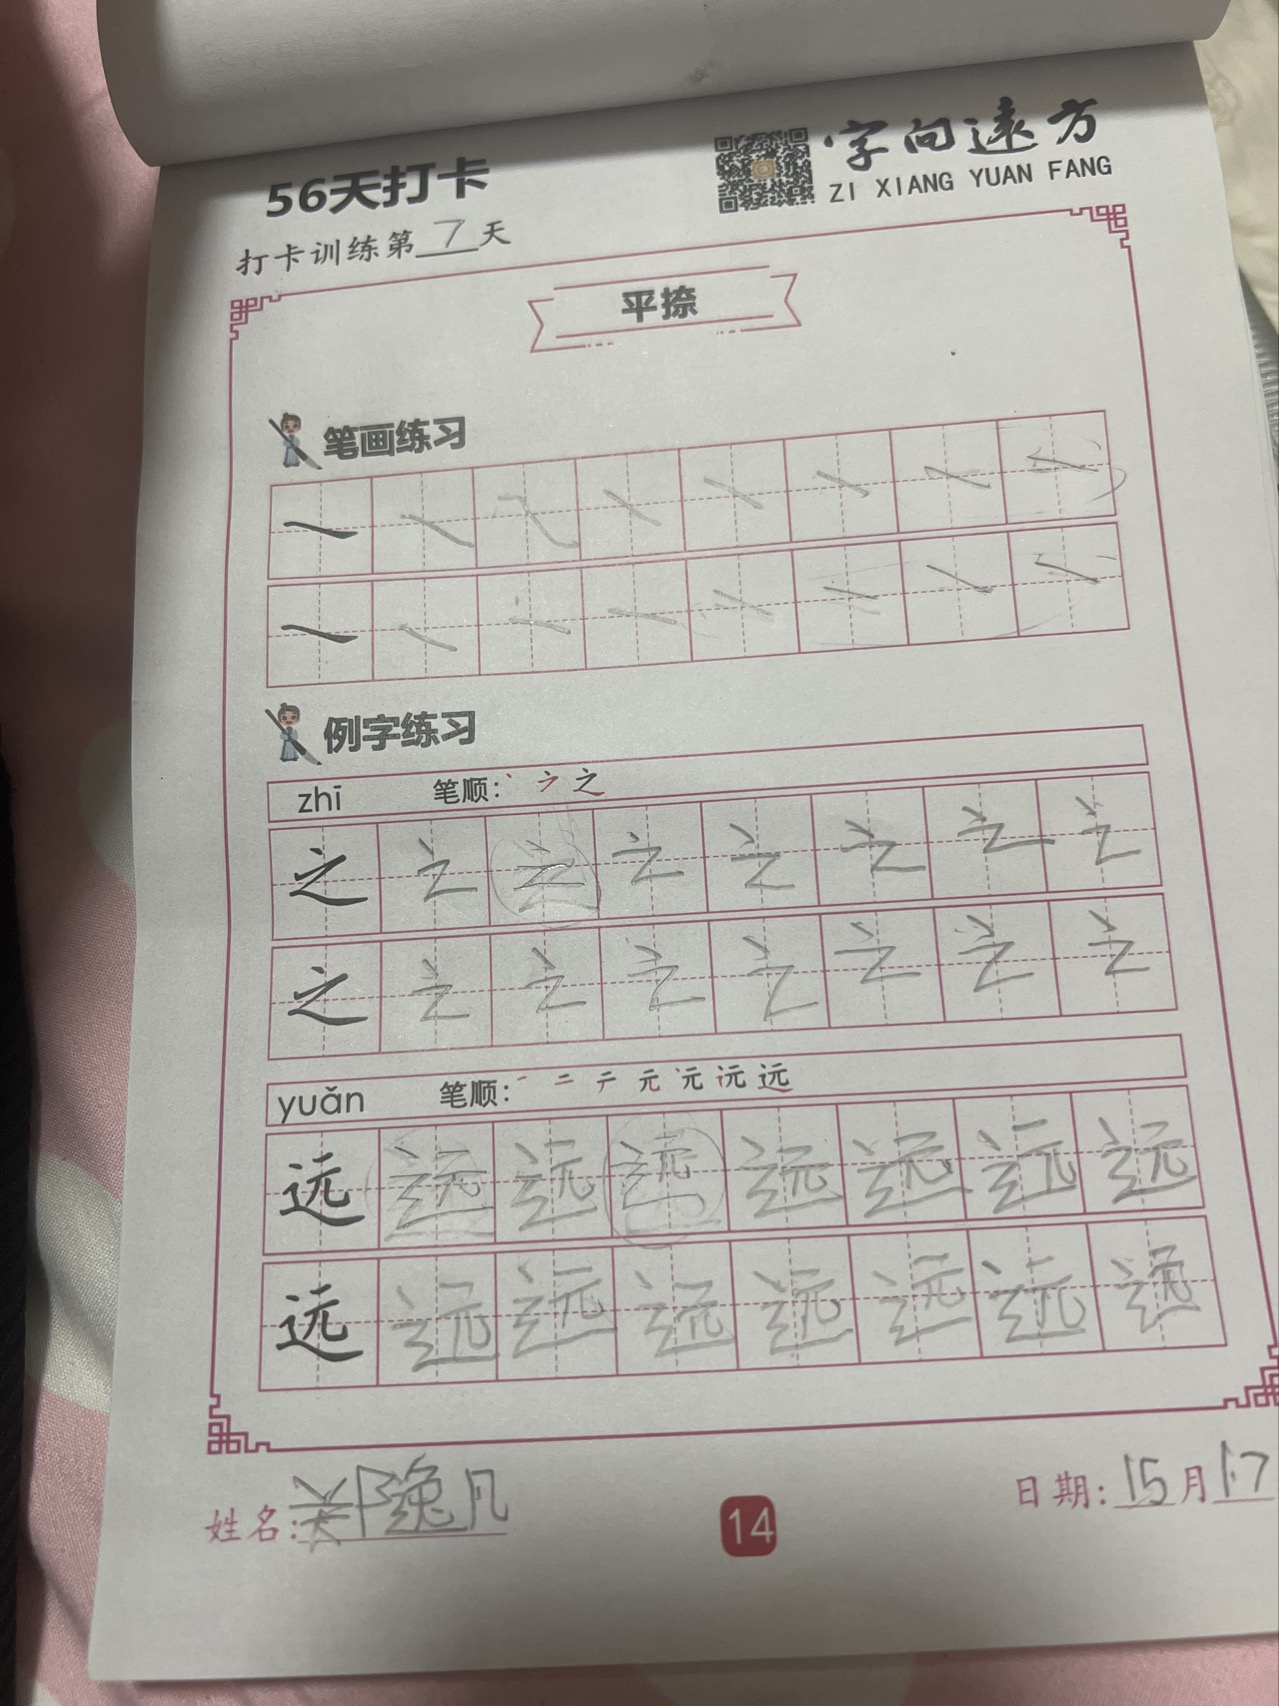 56天打卡
字向遠方
ZI XIANG YUAN FANG
打卡训练第 7 天
平捺
笔画练习
例字练习
zhī 笔顺: 丶 ㇇ 之
之 之 之 之 之 之 之 之
之 之 之 之 之 之 之 之
yuǎn 笔顺: 一 二 テ 元 远
远 远 远 远 远 远 远 远
远 远 远 远 远 远 远 远
姓名: 逸凡
14
日期: 15月17